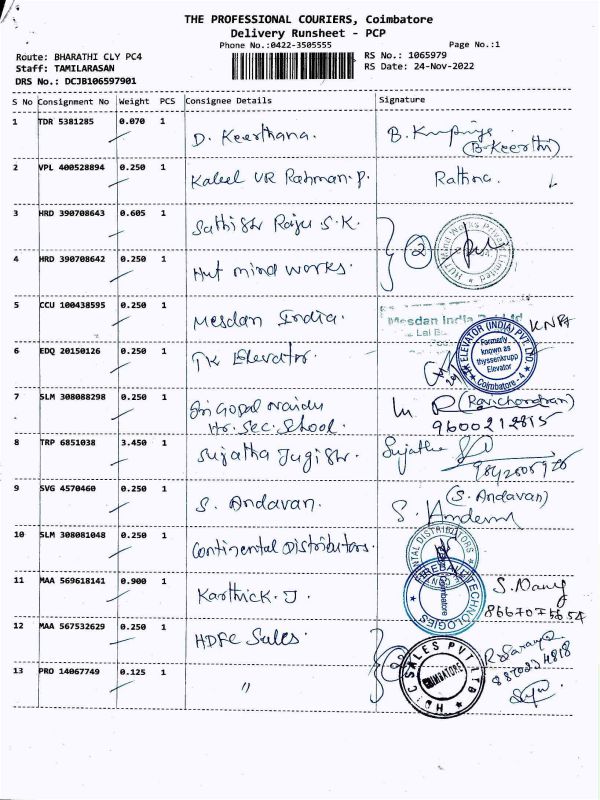 THE PROFESSIONAL COURIERS, Coimbatore
Delivery Runsheet - PCP
Phone No.:0422-3505555
Page No.:1
Route: BHARATHI CLY PC4
RS No.: 1065979
Staff: TAMILARASAN
RS Date: 24-Nov-2022
DRS No.: DCJB106597901
S No Consignment No Weight PCS Consignee Details Signature
1 TDR 5381285 0.070 1 D. Keerthana. B.
(B.Keerthi)
2 VPL 400528894 0.250 1 Kaleel UR Rahman.P.
3 HRD 390708643 0.605 1 Sathish Raju S.K. 2
4 HRD 390708642 0.250 1 Hut mind works.
HUT Mind Works Private Limited
5 CCU 100438595 0.250 1 Mesdan India. Mesdan India Pvt Ltd
6 EDQ 20150126 0.250 1 TK Elevator.
TK ELEVATOR (INDIA) PVT. LTD.
Formerly
known as
thyssenkrupp
Elevator
Coimbatore - 4
7 SLM 308088298 0.250 1 Sri Gopal Naidu (Ravichandran)
Hr. Sec. School. 9600212815
8 TRP 6851038 3.450 1 Sujatha Jugish. Sujatha
9 SVG 4570460 0.250 1 S. Andavan. (S. Andavan)
10 SLM 308081048 0.250 1 Continental Distributors.
DISTRIBUTORS
11 MAA 569618141 0.900 1 Karthick. J.
FIREBALL TECHNOLOGIES
Coimbatore
12 MAA 567532629 0.250 1 HDFC Sales.
8870224818
13 PRO 14067749 0.125 1 "
SALES PVT LTD
COIMBATORE